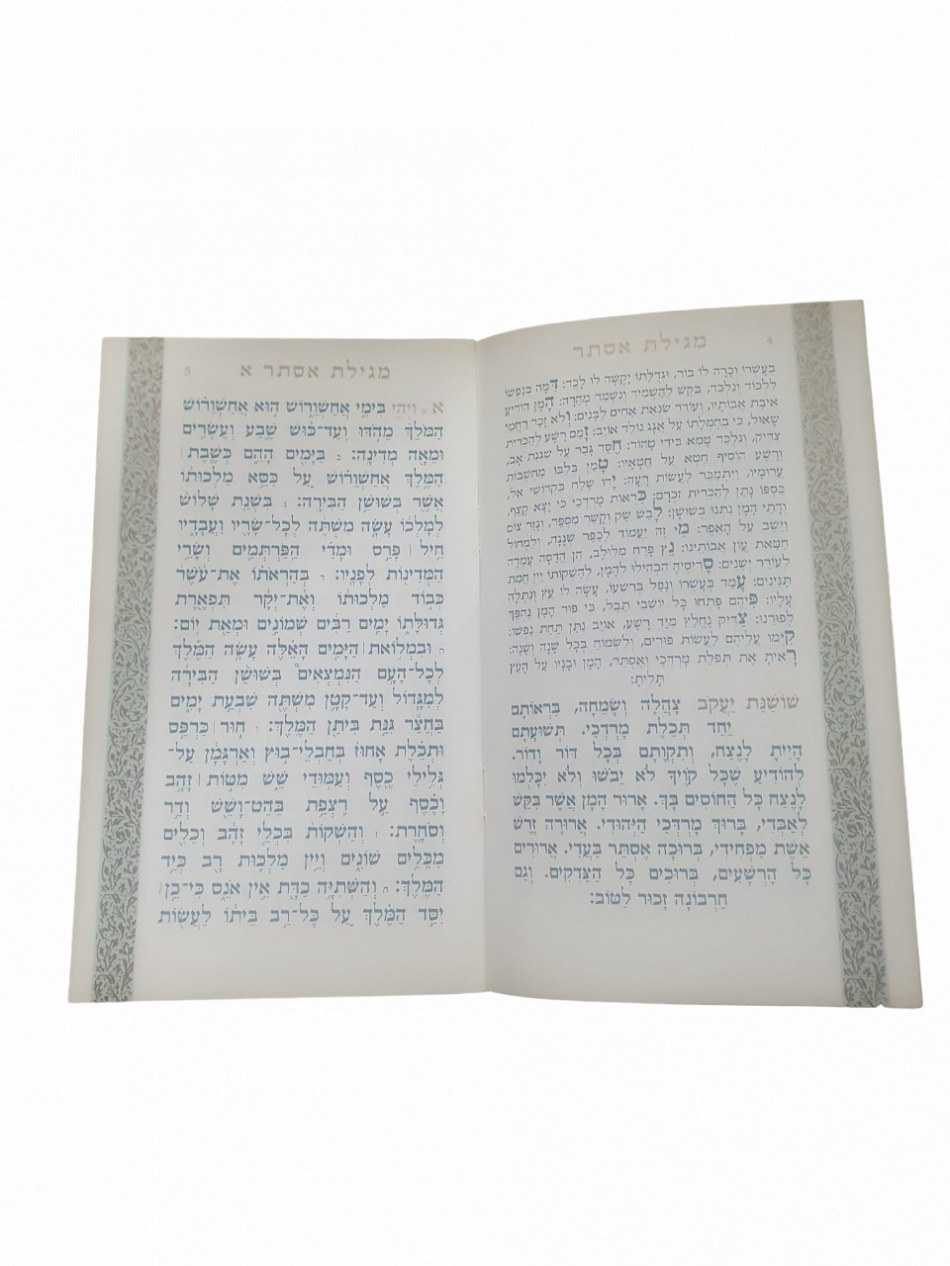 4
מגילת אסתר
בעשרו וכרה לו בור, וגדלתו יקשה לו לכד: דמה בנפשו
ללכוד ונלכד, בקש להשמיד ונשמד מהרה: המן הודיע
איבת אבותיו, ועורר שנאת אחים לבנים: ולא זכר רחמי
שאול, כי בחמלתו על אגג נולד אויב: זמם רשע להכרית
צדיק, ונלכד טמא בידי טהור: חסד גבר על שגגת אב,
ורשע הוסיף חטא על חטאיו: טמן בלבו מחשבות
ערומיו, ויתמכר לעשות רעה: ידו שלח בקדושי אל,
כספו נתן להכרית זכרם: כראות מרדכי כי יצא קצף,
ודתי המן נתנו בשושן: לבש שק וקשר מספד, וגזר צום
וישב על האפר: מי זה יעמוד לכפר שגגה, ולמחול
חטאת עון אבותינו: נץ פרח מלולב, הן הדסה עמדה
לעורר ישנים: סריסיה הבהילו להמן, להשקותו יין חמת
תנינים: עמד בעשרו ונפל ברשעו, עשה לו עץ ונתלה
עליו: פיהם פתחו כל יושבי תבל, כי פור המן נהפך
לפורנו: צדיק נחלץ מיד רשע, אויב נתן תחת נפשו:
קימו עליהם לעשות פורים, ולשמוח בכל שנה ושנה:
ראית את תפלת מרדכי ואסתר, המן ובניו על העץ
תלית:
שושנת יעקב צהלה ושמחה, בראותם
יחד תכלת מרדכי. תשועתם
היית לנצח, ותקותם בכל דור ודור.
להודיע שכל קויך לא יבשו ולא יכלמו
לנצח כל החוסים בך. ארור המן אשר בקש
לאבדי, ברוך מרדכי היהודי. ארורה זרש
אשת מפחידי, ברוכה אסתר בעדי. ארורים
כל הרשעים, ברוכים כל הצדיקים. וגם
חרבונה זכור לטוב:
מגילת אסתר א
5
א א ויהי בימי אחשורוש הוא אחשורוש
המלך מהדו ועד־כוש שבע ועשרים
ומאה מדינה: ב בימים ההם כשבת |
המלך אחשורוש על כסא מלכותו
אשר בשושן הבירה: ג בשנת שלוש
למלכו עשה משתה לכל־שריו ועבדיו
חיל | פרס ומדי הפרתמים ושרי
המדינות לפניו: ד בהראתו את־עשר
כבוד מלכותו ואת־יקר תפארת
גדולתו ימים רבים שמונים ומאת יום:
ה ובמלואת | הימים האלה עשה המלך
לכל־העם הנמצאים בשושן הבירה
למגדול ועד־קטן משתה שבעת ימים
בחצר גנת ביתן המלך: ו חור | כרפס
ותכלת אחוז בחבלי־בוץ וארגמן על־
גלילי כסף ועמודי שש מטות | זהב
וכסף על רצפת בהט־ושש ודר
וסחרת: ז והשקות בכלי זהב וכלים
מכלים שונים ויין מלכות רב כיד
המלך: ח והשתיה כדת אין אנס כי־כן |
יסד המלך על כל־רב ביתו לעשות